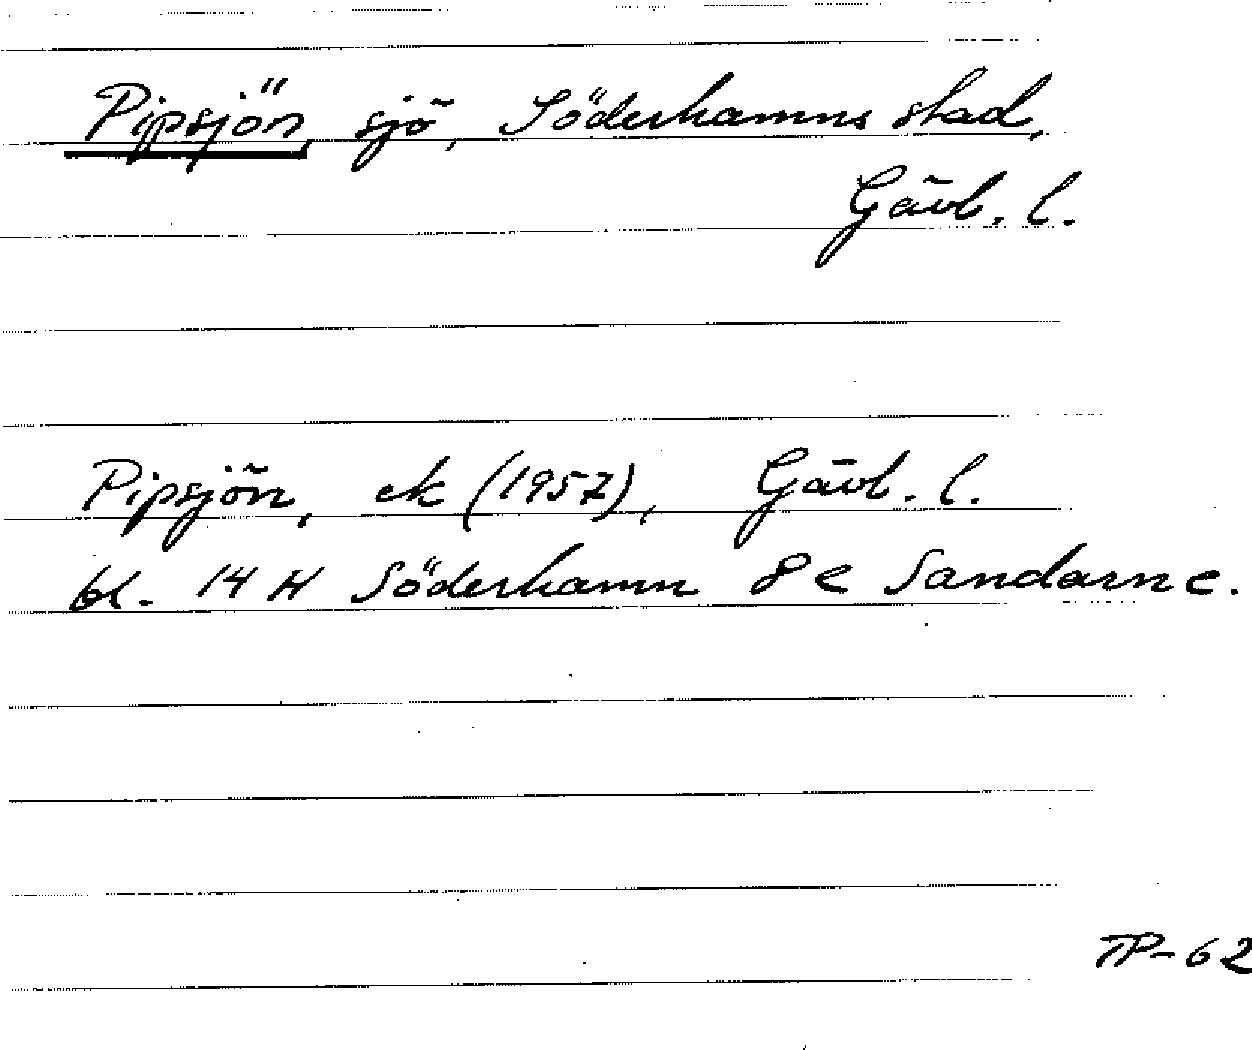 Pipsjön, sjö, Söderhamns stad,
Gävl. l.
Pipsjön, ek (1957), Gävl. l.
bl. 14 H Söderhamn 8 e Sandarne.
TP-62